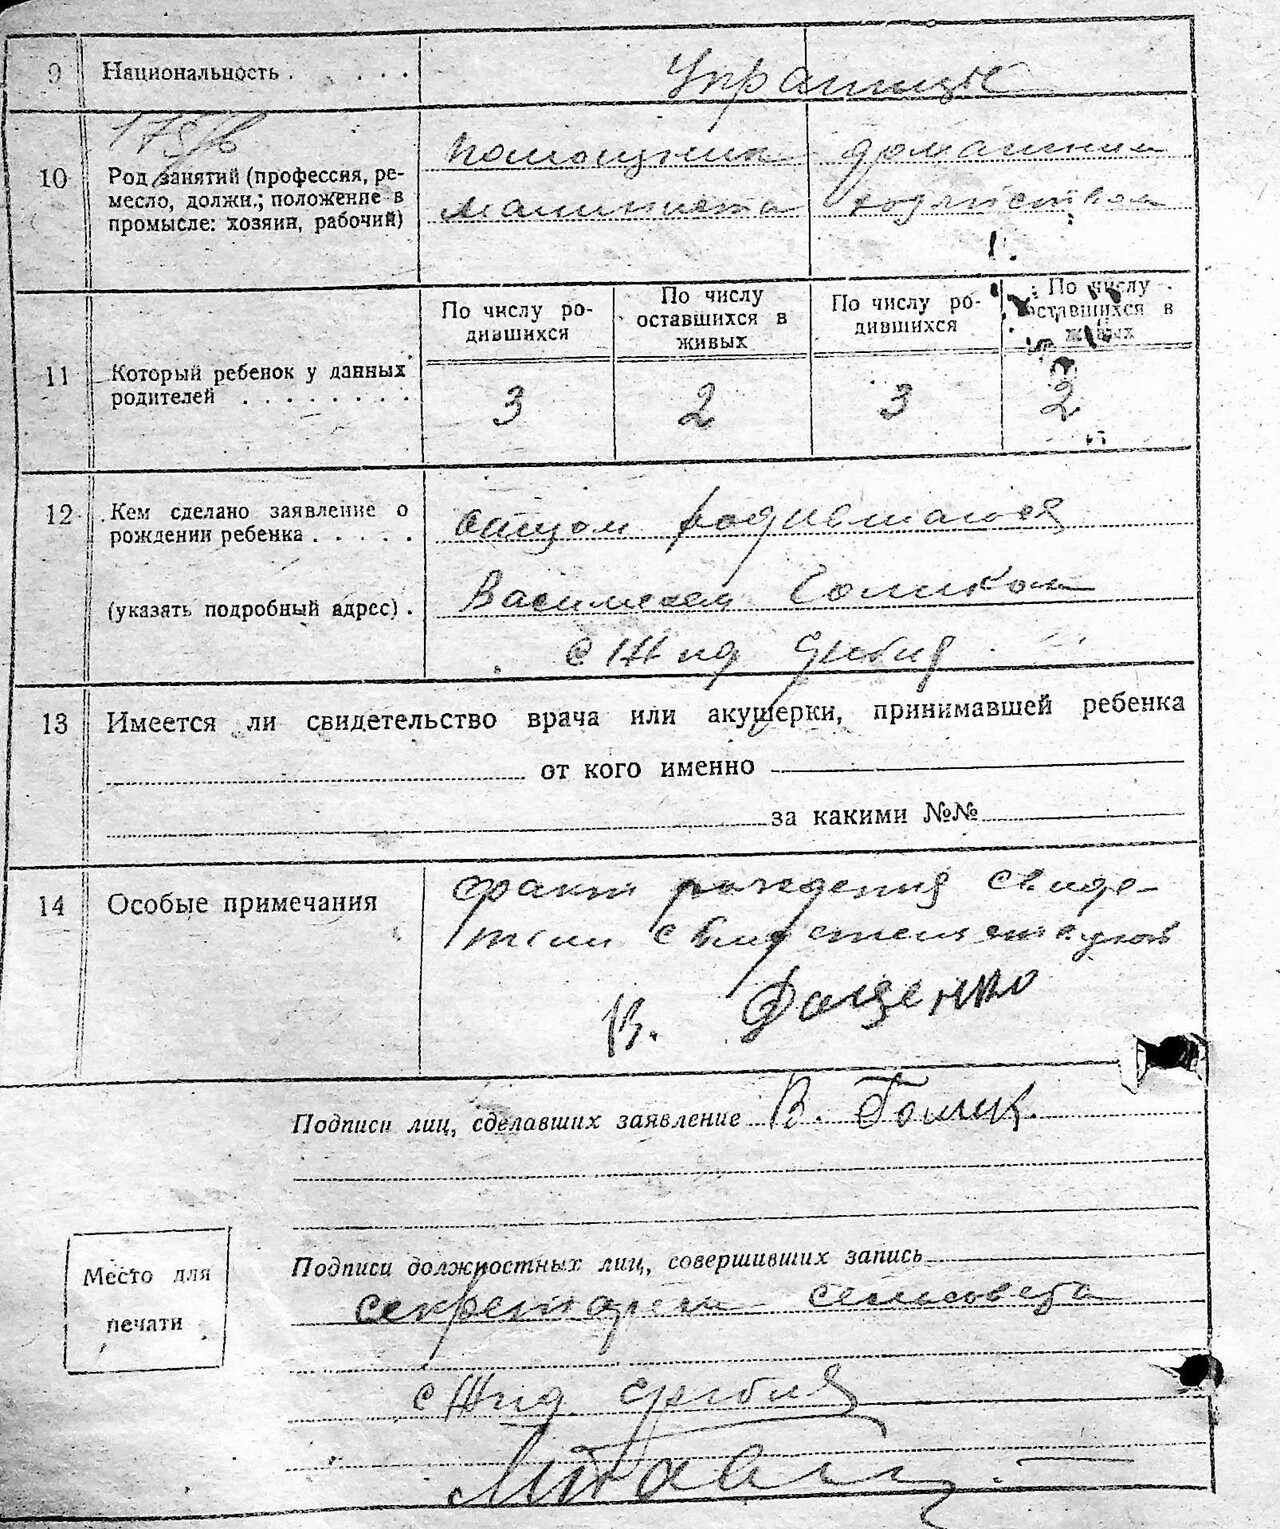 9 Национальность . . . . . Украинцы
10 Род занятий (профессия, ре-
месло, должн.; положение в
промысле: хозяин, рабочий)
помощник домашним
машиниста хозяйством
11 Который ребенок у данных
родителей . . . . . . . .
По числу ро-
дившихся
По числу
оставшихся в
живых
По числу ро-
дившихся
По числу
оставшихся в
живых
3 2 3 2
12 Кем сделано заявление о
рождении ребенка . . . . .
(указать подробный адрес) .
отцом родившагося
Василием Голиком
13 Имеется ли свидетельство врача или акушерки, принимавшей ребенка
от кого именно
за какими №№
14 Особые примечания
факт рождения свиде-
В. Даценко
Подписи лиц, сделавших заявление В. Голик.
Подписи должностных лиц, совершивших запись
секретарем сельсовета
Место для
печати